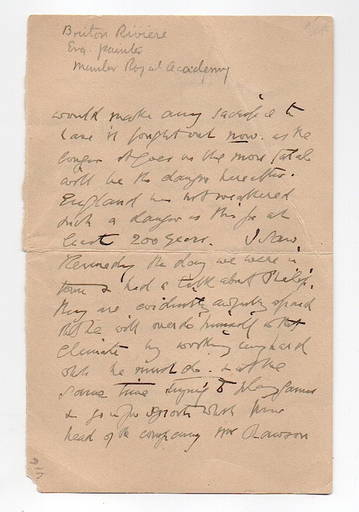 Briton Riviere
Eng. painter
Member Royal Academy
would make any sacrifice to
have it fought out now. as the
longer it goes on the more fatal
will be the danger hereafter.
England has not weathered
such a danger as this for at
least 200 years. I saw
Kennedy the day we were in
town & had a talk about Philip.
They are evidently afraid
that he will overdo himself in that
climate by working very hard
which he must do. & at the
same time trying to play games
& go in for sports which
head of the company Mr Lawson